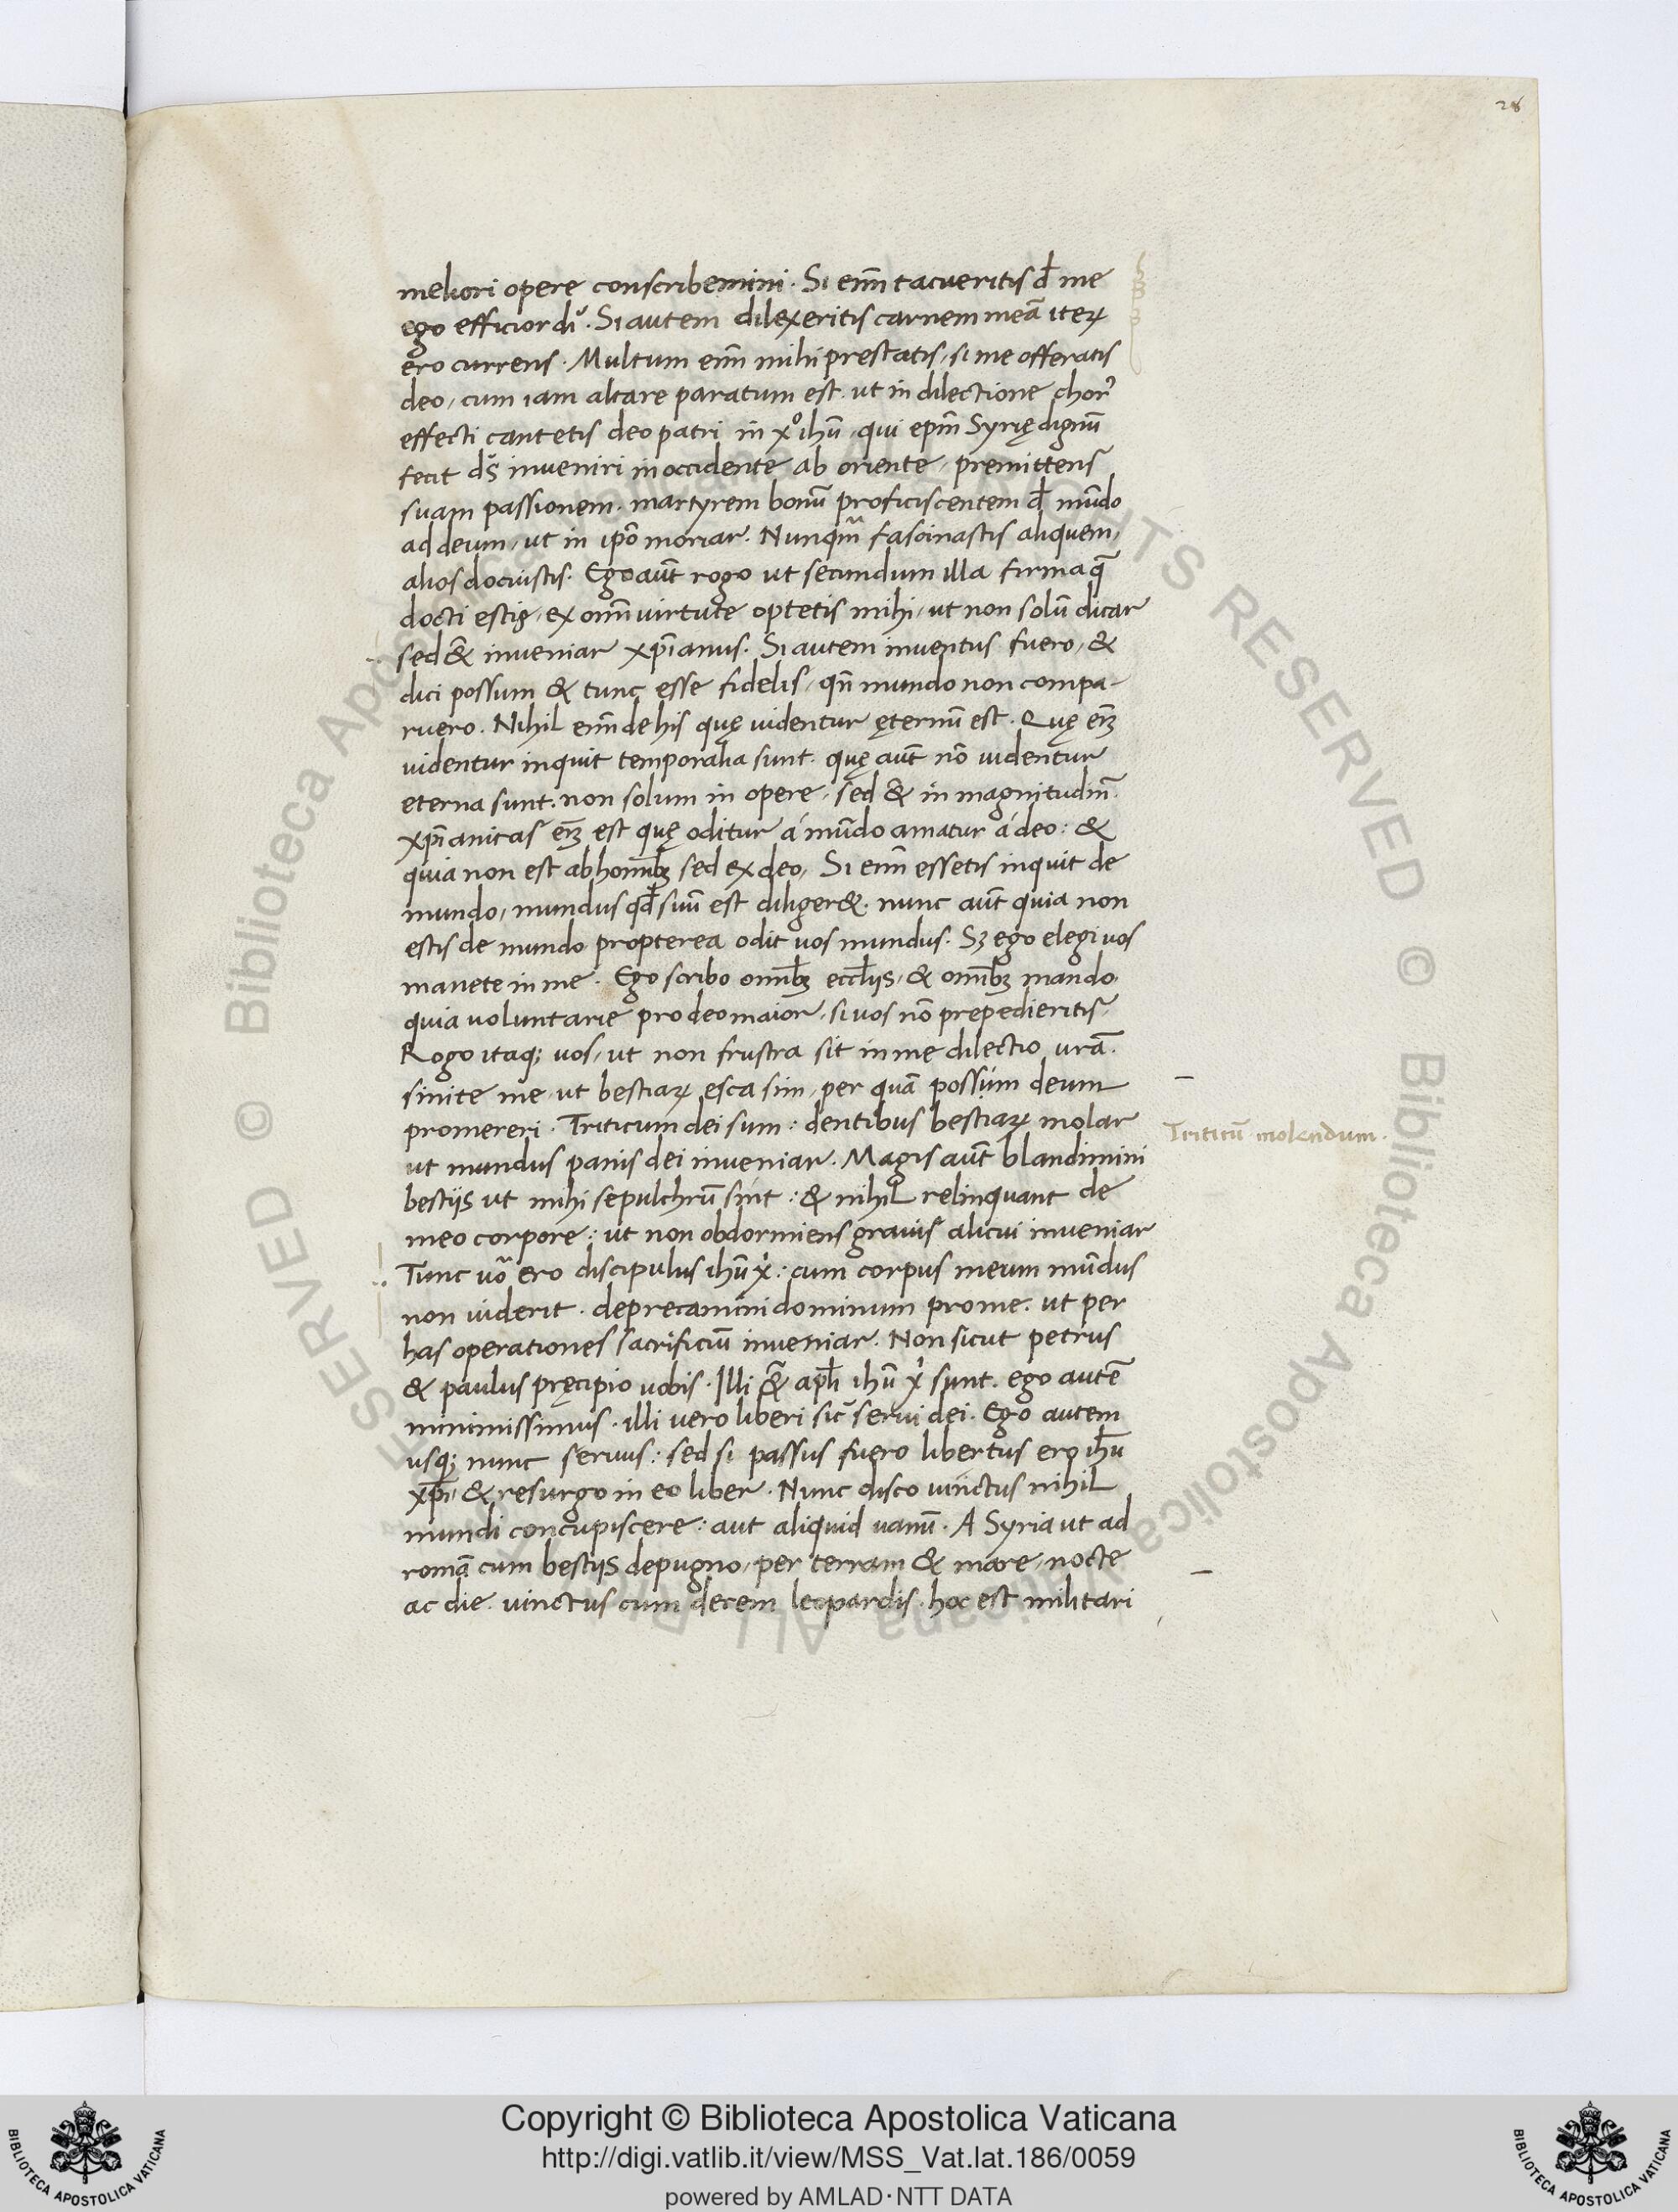 28
meliori opere conscribemini. Si enī tacueritis đ me
ego efficior di᷎. Si autem dilexeritis carnem meā iteꝝ
ero currens. Multum enī mihi prestatis, si me offeratis
deo, cum iam altare paratum est. ut in dilectione chor᷎
effecti cantetis deo patri in x̊ ihū, qui epm̄ Syrię dignū
fecit ds̄ inueniri in occidente ab oriente, premittens
suam passionem. martyrem bonū proficiscentem đ mūdo
ad deum, ut in ip̄o moriar. Nunqm̄ fascinastis aliquem,
alios docuistis. Ego aūt rogo ut secundum illa firma q̄
docti estis, ex om̄i virtute optetis mihi, ut non solū dicar
sed &̄ inueniar xp̄ianus. Si autem inuentus fuero, &
dici possum & tunc esse fidelis, qn̄ mundo non compa-
ruero. Nihil enī de his quę uidentur ęternū est. Quę em̄
uidentur inquit temporalia sunt. quę aūt nō uidentur
eterna sunt. non solum in opere, sed & in magnitudīe.
xp̄ianitas em̄ est quę oditur á mūdo amatur á deo: &
quia non est ab homībꝫ sed ex deo, Si enī essetis inquit de
mundo, mundus qđ suū est diliger&. nunc aūt quia non
estis de mundo propterea odit uos mundus. Sꝫ ego elegi uos
manete in me. Ego scribo omībꝫ eccl̄iis, & omībꝫ mando.
quia voluntarie pro deo maior, si uos nō prepedieritis.
Rogo itaqꝫ uos, ut non frustra sit in me dilectio ur̄a.
sinite me, ut bestiaꝝ esca sim, per quā possum deum
promereri. Triticum dei sum: dentibus bestiaꝝ molar
ut mundus panis dei inueniar. Magis aūt blandimini
bestiis ut mihi sepulchrū sint: & nihil relinquant de
meo corpore: ut non obdormiens grauis alicui inueniar
Tunc uō ero discipulus ihū x᷎: cum corpus meum mūdus
non uiderit. deprecamini dominum pro me. ut per
has operationes sacrificiū inueniar. Non sicut petrus
& paulus pręcipio uobis. Illi &̄ ap̄li ihū x᷎ sunt. ego autē
minimissimus. illi uero liberi sic̄ serui dei. Ego autem
usqꝫ nunc seruus: sed si passus fuero libertus ero ihū
xp̄i, & resurgo in eo liber. Nunc disco uinctus nihil
mundi concupiscere: aut aliquid uanū. A Syria ut ad
romā cum bestiis depugno, per terram & mare, nocte
ac die. uinctus cum decem leopardis. hoc est militari
Triticū molendum.
© Biblioteca Apostolica Vaticana ALL RIGHTS RESERVED
Copyright © Biblioteca Apostolica Vaticana
http://digi.vatlib.it/view/MSS_Vat.lat.186/0059
powered by AMLAD·NTT DATA
BIBLIOTECA APOSTOLICA VATICANA
BIBLIOTECA APOSTOLICA VATICANA